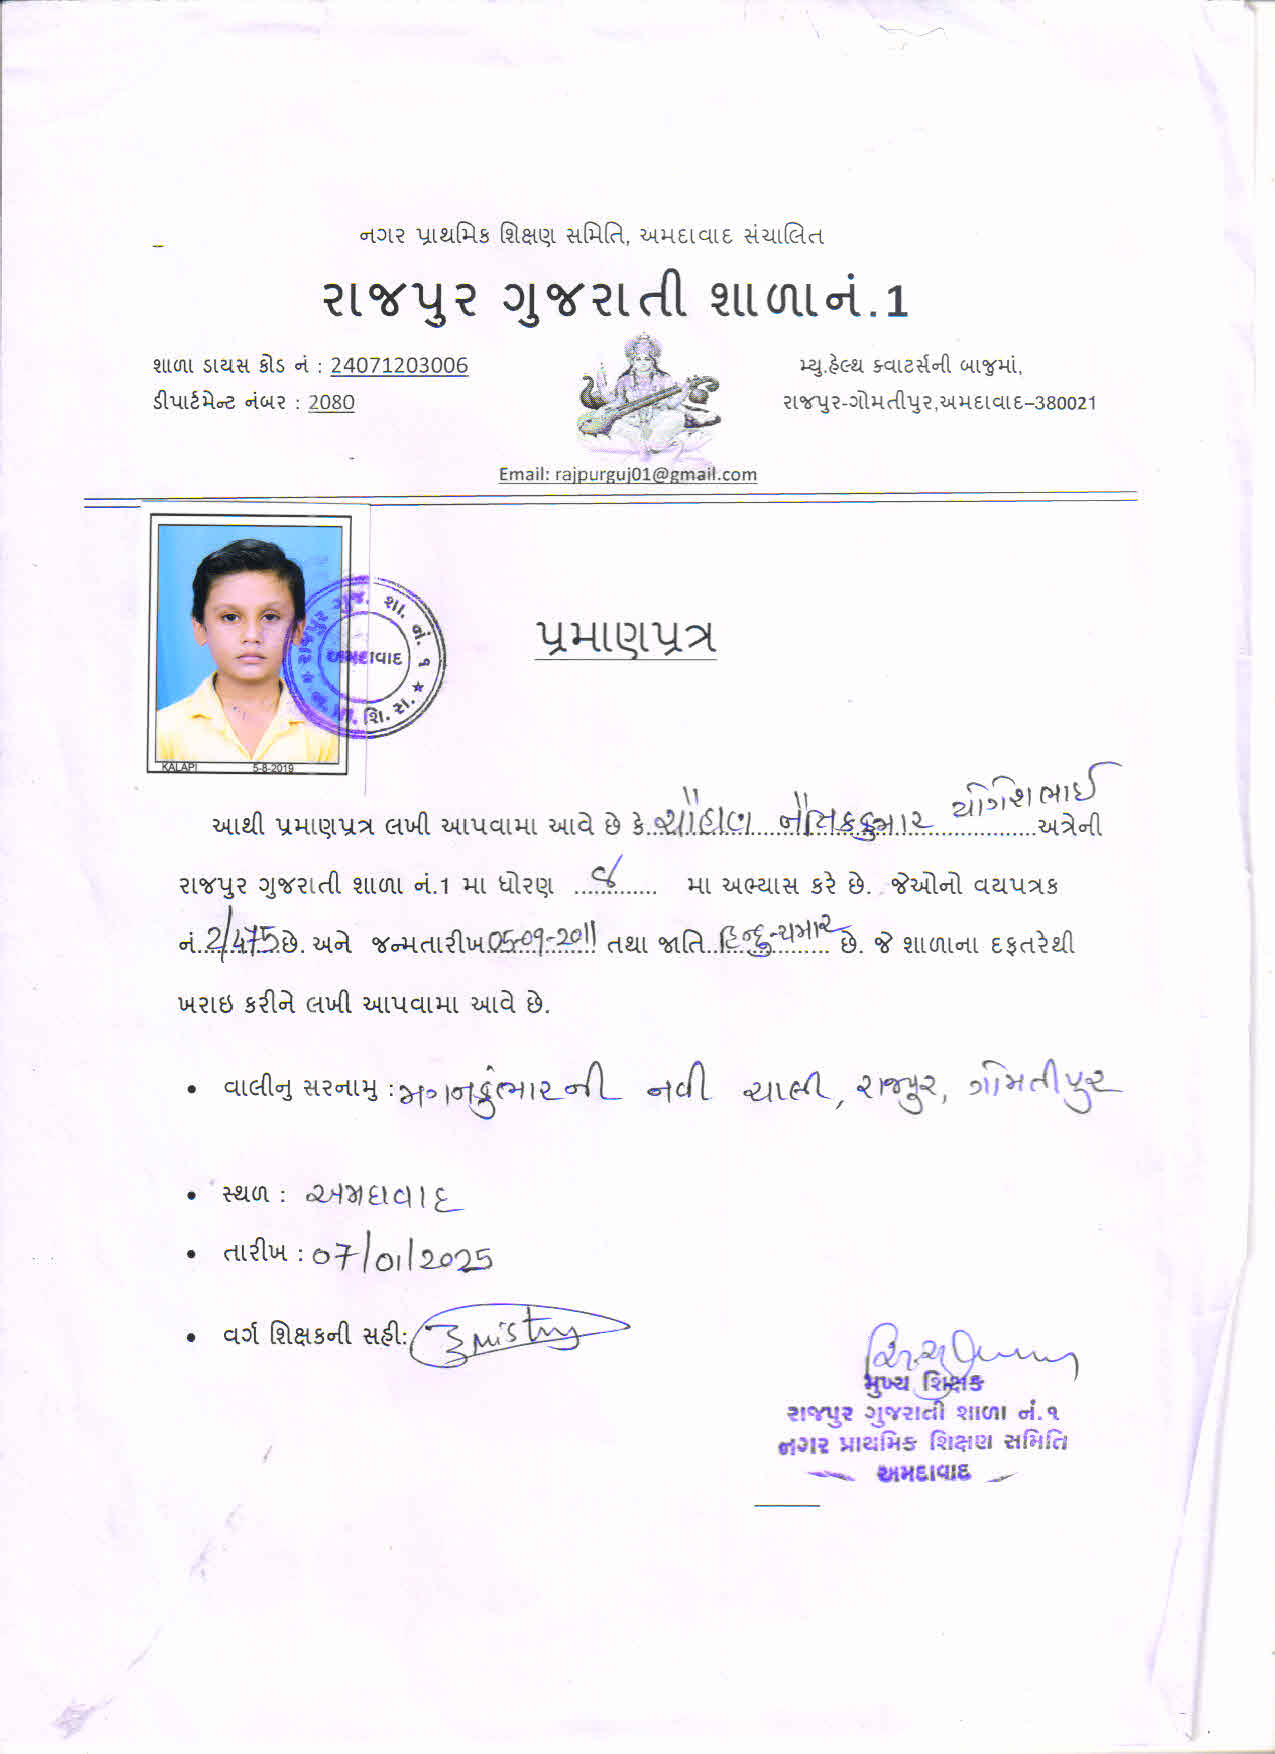 નગર પ્રાથમિક શિક્ષણ સમિતિ, અમદાવાદ સંચાલિત
રાજપુર ગુજરાતી શાળા નં.1
શાળા ડાયસ કોડ નં : 24071203006
મ્યુ.હેલ્થ ક્વાટર્સની બાજુમાં,
ડીપાર્ટમેન્ટ નંબર : 2080
રાજપુર-ગોમતીપુર,અમદાવાદ–380021
Email: rajpurguj01@gmail.com
રાજપુર ગુજ. શા. નં. ૧
અમદાવાદ
ન. પ્રા. શિ. સ.
પ્રમાણપત્ર
KALAPI 5-8-2019
આથી પ્રમાણપત્ર લખી આપવામા આવે છે કે ચૌહાણ નૈતિકકુમાર યોગેશભાઈ અત્રેની
રાજપુર ગુજરાતી શાળા નં.1 મા ધોરણ ૮ મા અભ્યાસ કરે છે. જેઓનો વયપત્રક
નં. 2/475 છે. અને જન્મતારીખ 05-09-2011 તથા જાતિ હિન્દુ-ચમાર છે. જે શાળાના દફતરેથી
ખરાઇ કરીને લખી આપવામા આવે છે.
• વાલીનુ સરનામુ : મગનકુંભારની નવી ચાલી, રાજપુર, ગોમતીપુર
• સ્થળ : અમદાવાદ
• તારીખ : 07/01/2025
• વર્ગ શિક્ષકની સહી:
મુખ્ય શિક્ષક
રાજપુર ગુજરાતી શાળા નં.૧
નગર પ્રાથમિક શિક્ષણ સમિતિ
અમદાવાદ